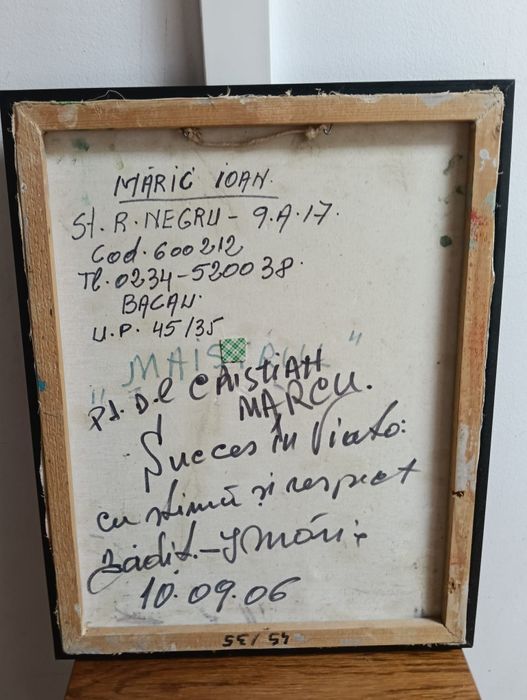 MĂRIC IOAN.
St. R. NEGRU - 9. A. 17.
Cod. 600212
Tl. 0234-520038.
BACAU.
U.P. 45/35
"MAISTRUL"
Pt. Dl CRISTIAN
MARCU.
Succes în Viata:
cu stimă și respect
I Măric
10.09.06
45/35